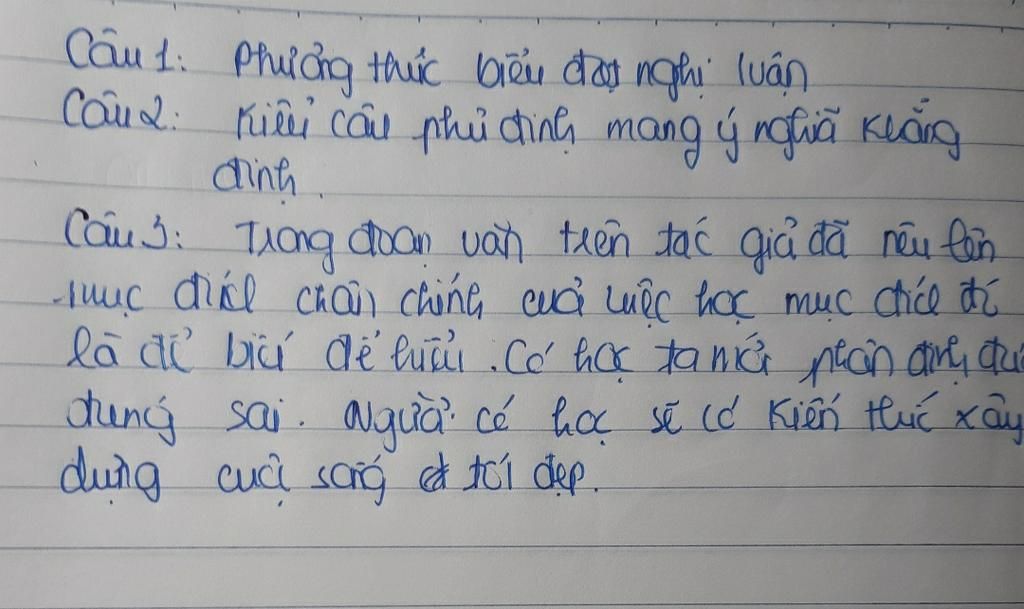 Câu 1: Phưởng thức biểu đạt nghị luận
Câu 2: Kiểu câu phủ định mang ý nghĩã khẳng
định.
Câu 3: Trong đoạn văn trên tác giả đã nêu lên
mục đích chân chính cuả việc học mục đích đó
là để biết để hiểu. Có học ta mới phân định đư
đung sai. Người có học sẽ có kiến thức xây
dựng cuộc sống tốt đẹp.